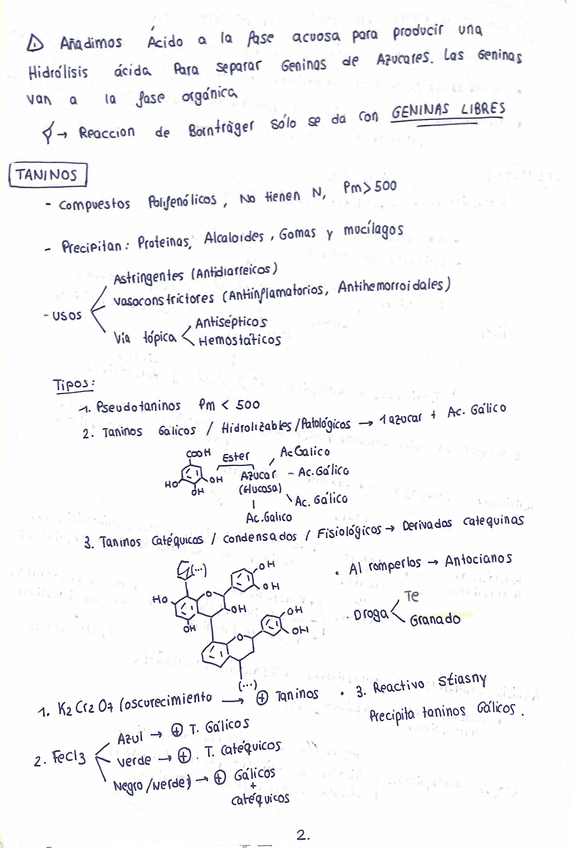 ⚠ Añadimos Ácido a la fase acuosa para producir una
Hidrólisis ácida Para separar Geninas de Azucares. Las Geninas
van a la fase orgánica
→ Reaccion de Bornträger Sólo se da con GENINAS LIBRES
TANINOS
- Compuestos Polifenólicos, No tienen N, Pm > 500
- Precipitan: Proteinas, Alcaloides, Gomas y mucílagos
- USOS
Astringentes (Antidiarreicos)
Vasoconstrictores (Antiinflamatorios, Antihemorroidales)
Vía tópica
Antisépticos
Hemostáticos
Tipos:
1. Pseudotaninos Pm < 500
2. Taninos Galicos / Hidrolizables / Patológicos → 1 azucar + Ac. Gálico
COOH Ester Ac Galico
HO OH Azucar - Ac. Gálico
OH (Glucosa)
Ac. Gálico
Ac. Galico
3. Taninos Catéquicos / condensados / Fisiológicos → Derivados catequinas
(...)
OH
OH
HO O
OH
OH
OH
O OH
(...)
• Al romperlos → Antocianos
• Droga
Te
Granado
1. K2Cr2O7 (oscurecimiento → ⊕ Taninos
• 3. Reactivo Stiasny
Precipita taninos Gálicos.
2. FeCl3
Azul → ⊕ T. Gálicos
Verde → ⊕ . T. Catéquicos
Negro (Verde) → ⊕ Gálicos
+
catéquicos
2.